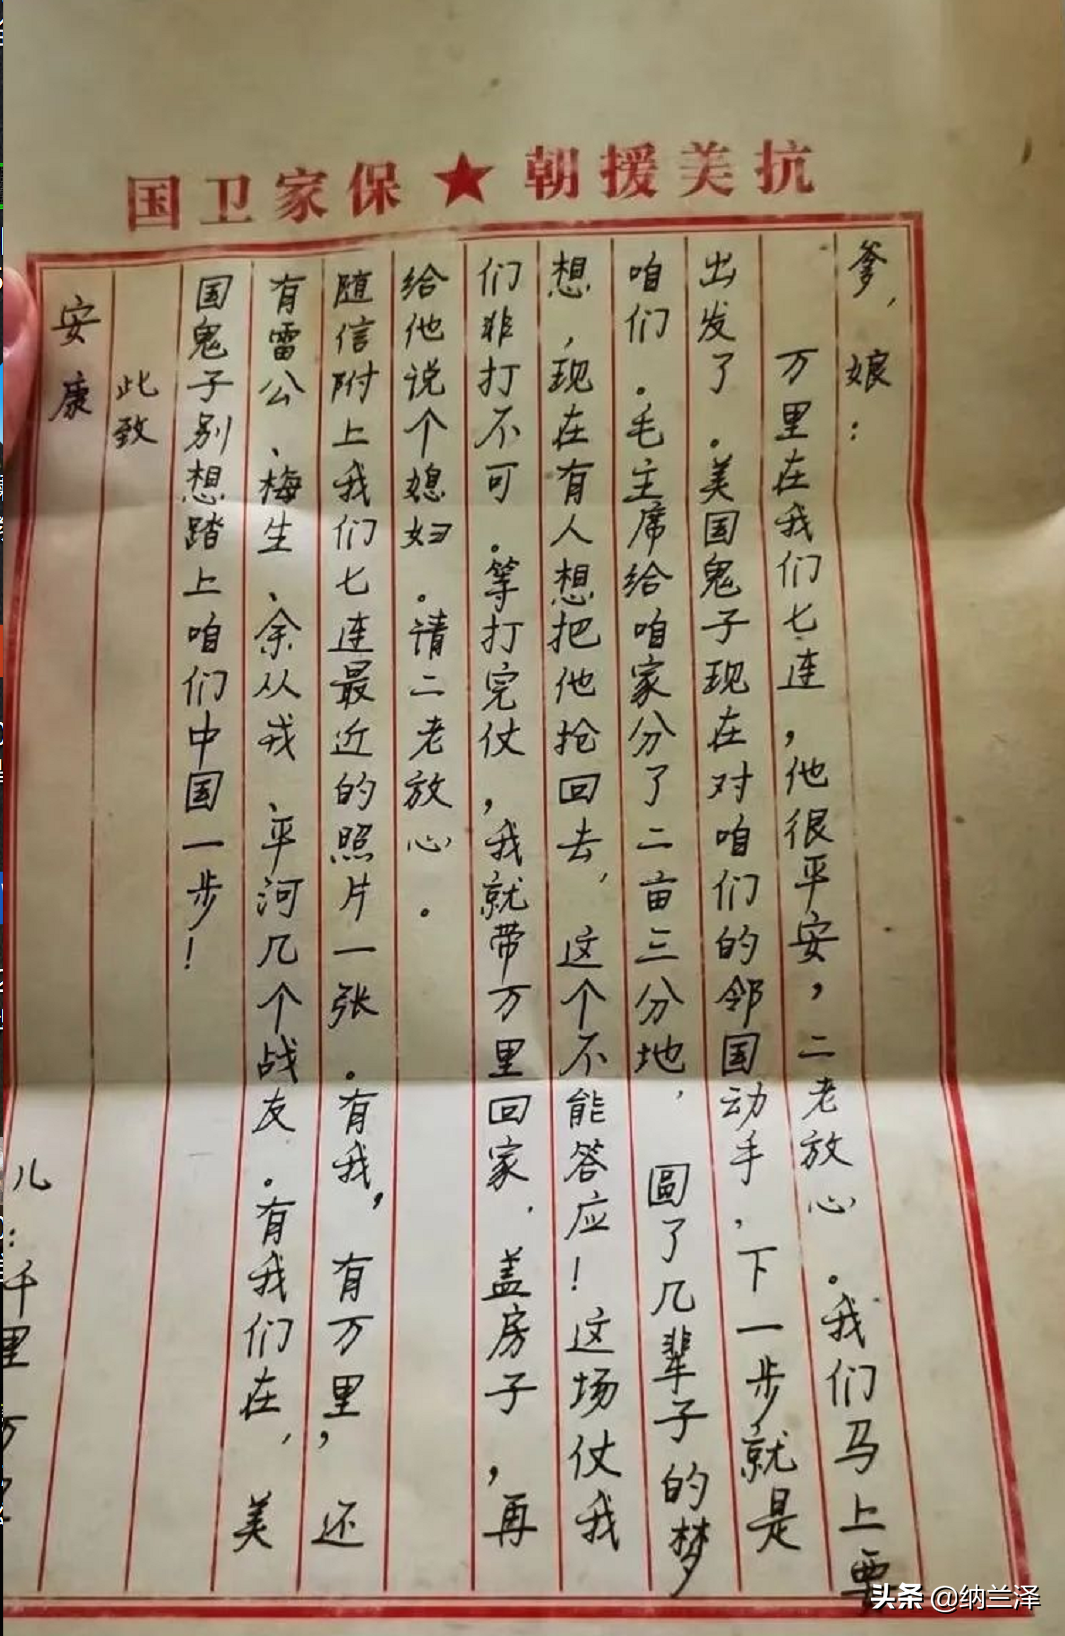 抗美援朝★保家卫国
爹，娘：
万里在我们七连，他很平安，二老放心。我们马上要
出发了。美国鬼子现在对咱们的邻国动手，下一步就是
咱们。毛主席给咱家分了二亩三分地，圆了几辈子的梦
想，现在有人想把他抢回去，这个不能答应！这场仗我
们非打不可。等打完仗，我就带万里回家，盖房子，再
给他说个媳妇。请二老放心。
随信附上我们七连最近的照片一张。有我，有万里，还
有雷公、梅生、余从戎、平河几个战友。有我们在，美
国鬼子别想踏上咱们中国一步！
此致
安康
儿：千里 万
头条 @纳兰泽